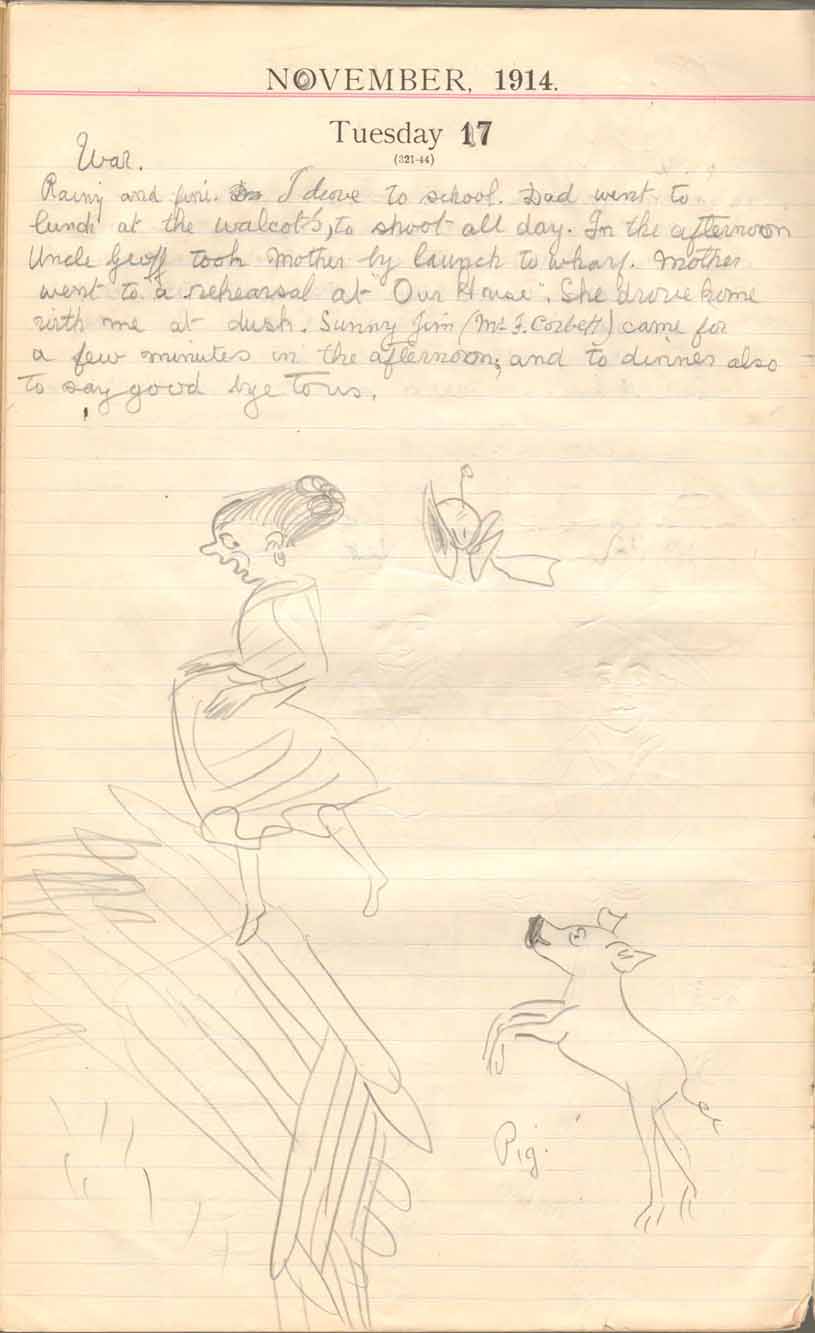 NOVEMBER, 1914.
Tuesday 17
(321-44)
War.
Rainy and fine. I drove to school. Dad went to
lunch at the Walcot's, to shoot all day. In the afternoon
Uncle Geoff took Mother by launch to wharf. Mother
went to "a rehearsal at "Our House". She drove home
with me at dusk. Sunny Jim (Mr F. Corbett) came for
a few minutes in the afternoon; and to dinner also
to say good bye to us.
Pig.